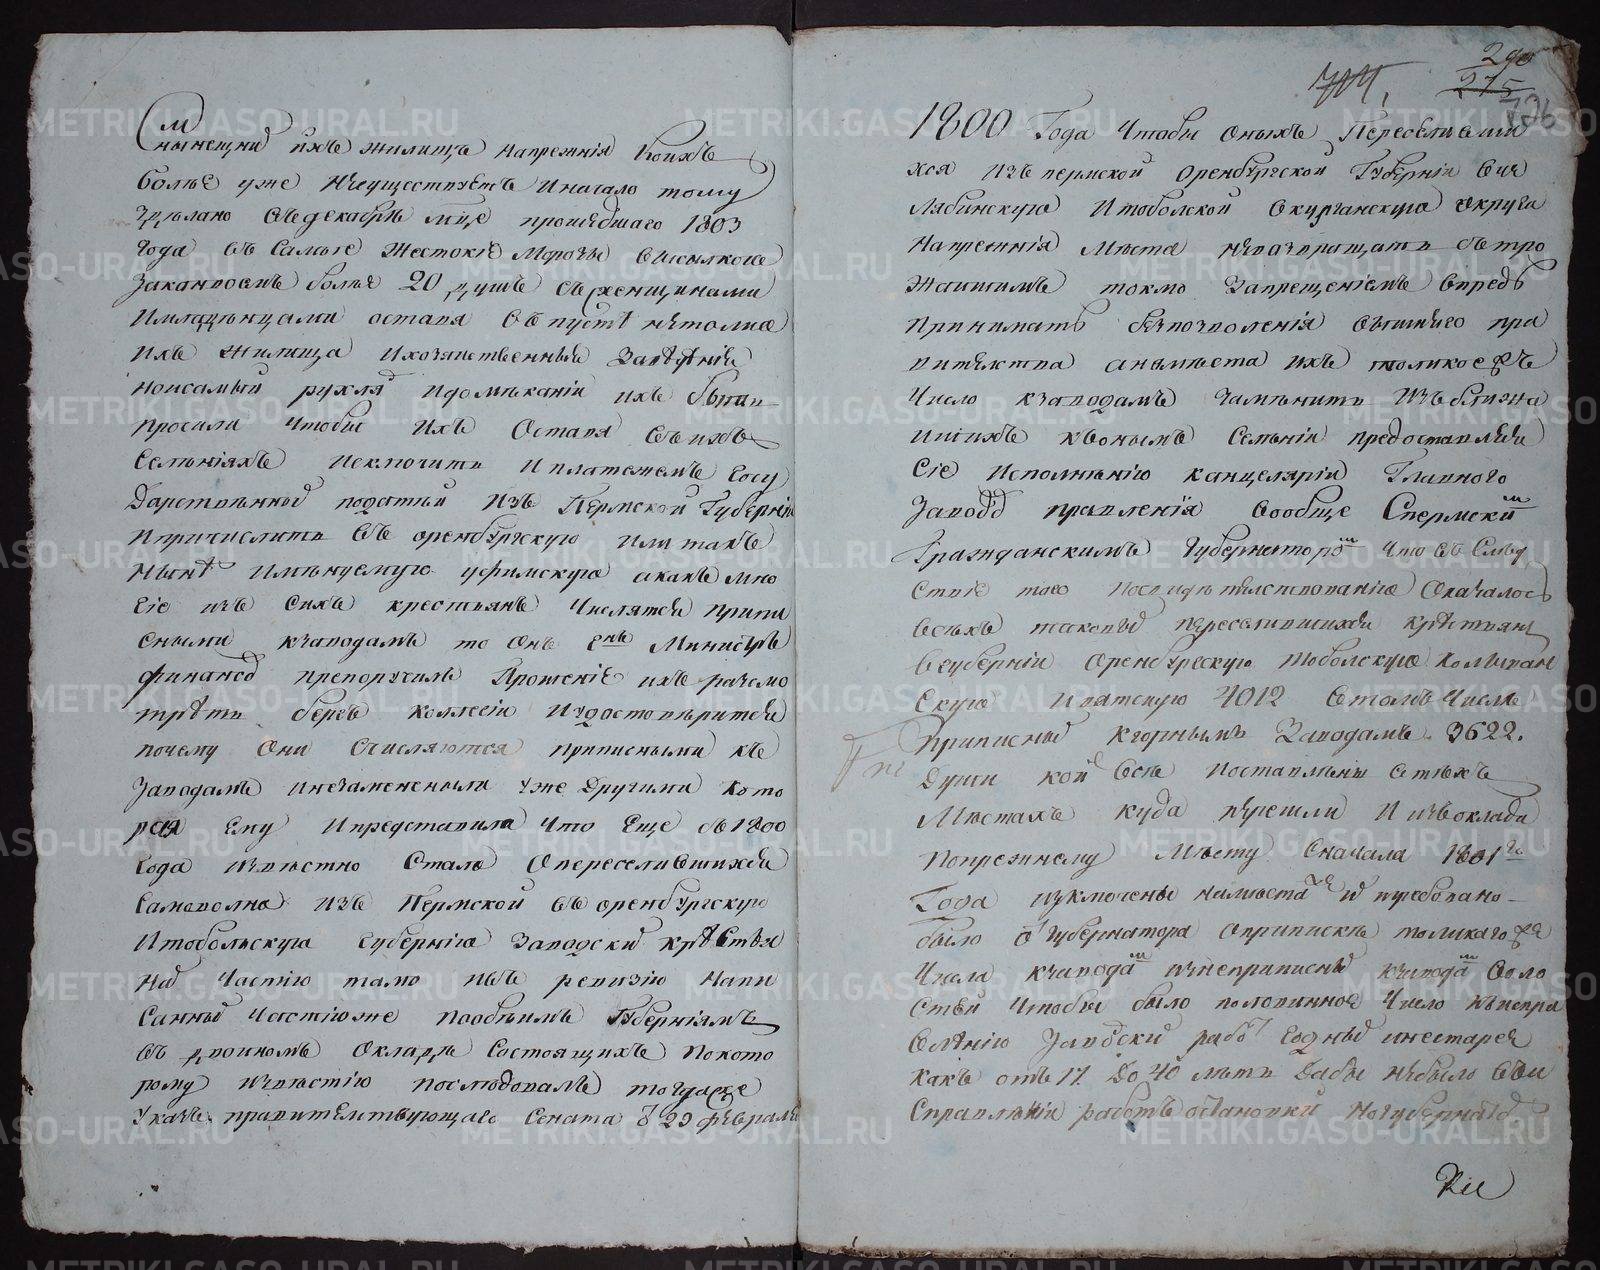 нынешни ихъ жилищъ напрежнiя коихъ
более уже несуществуетъ иначало тому
зделано въдекабре мце прошедшаго 1803
года въ самые жестокие морозы высылкою
законвоемъ более 20 душъ съженщинами
имладенцами оставя въ пусте нетолко
ихъ жилища ихозяйственныя заведения
ноисамый рухляд идомекании ихъ
просили чтобы ихъ оставя въихъ
селенiяхъ исключить иплатежемъ госу
дарственной податьми изъ Пермской Губернии
ипричислить въ оренбургскую или такъ
ныне имянуемую уфимскую акакъ мно
гiе изъ сихъ крестьянъ числятся припи
сными кзаводамъ то онъ гнъ Министръ
финансо препоручилъ прошенiе ихъ разсмо
треть бергъ коллегiи иудостовѣрится
почему они счисляются приписными къ
заводамъ инезамененыли уже другими кото
рая ему ипредставила что еще в 1800
года известно стало опереселившихся
самоволно изъ Пермской въ оренбургскую
итобольскую губернiю заводски крестья
на частiю тамо въ ревизiю напи
санны частiюже пообеимъ губернiямъ
въ двоиномъ окладе состоящихъ покото
рому известiю последовалъ тогдаже
указъ правителствующаго Сената о 23 февраля
704
290
275
706
1800 года чтобы оныхъ переселивши
хся изъ пермской оренбургской губернiи вче
лябинскую итоболской вкурганскую округи
напрежнiя места невозвращать
токмо запрещенiемъ впредь
принимать безпозволенiя вышняго пра
вителства анаместо ихъ толикоежъ
число кзаводамъ заменить изъближа
ишихъ къонымъ селенiи предоставляя
сiе исполненiю канцелярiи главнаго
заводо правленiя вообще спермски
гражданскимъ губернаторо что въ след
ствiе того поосвидетелствованiю оказалось
всехъ таковы переселившихся крестьянъ
вгубернiи оренбургскую тоболскую
скую ивятскую 4012 втомъ числе
приписны кгорнымъ заводамъ 3622.
души кои все поставлены втехъ
местахъ куда перешли иизъоклада
попрежнему месту сначала 1801 го
года изключены наместо че и требовано
было о губернатора оприписке толикагожъ
числа кзавода изнеприписны кзавода воло
стей чтобы было половинное число
заводски рабо годны инестарея
какъ отъ 17 до 40 летъ дабы небыло въи
справленiи работъ остановки ногубернато
рiи